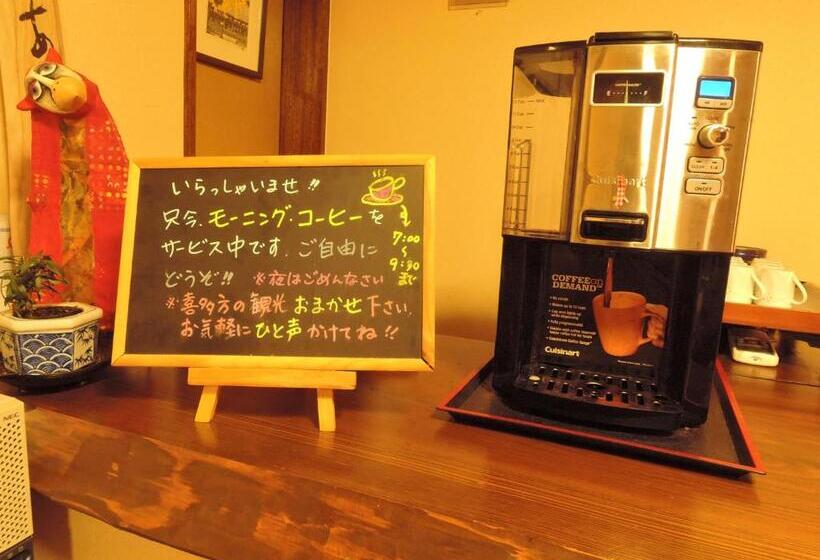 いらっしゃいませ!!
只今、モーニング・コーヒーを
サービス中です。ご自由に
どうぞ!! ※夜はごめんなさい
※喜多方の観光おまかせ下さい。
お気軽にひと声かけてね!!
7:00
〜
9:30
まで
Cuisinart
ON/OFF
COFFEE ON
DEMAND™
Cuisinart
NEC